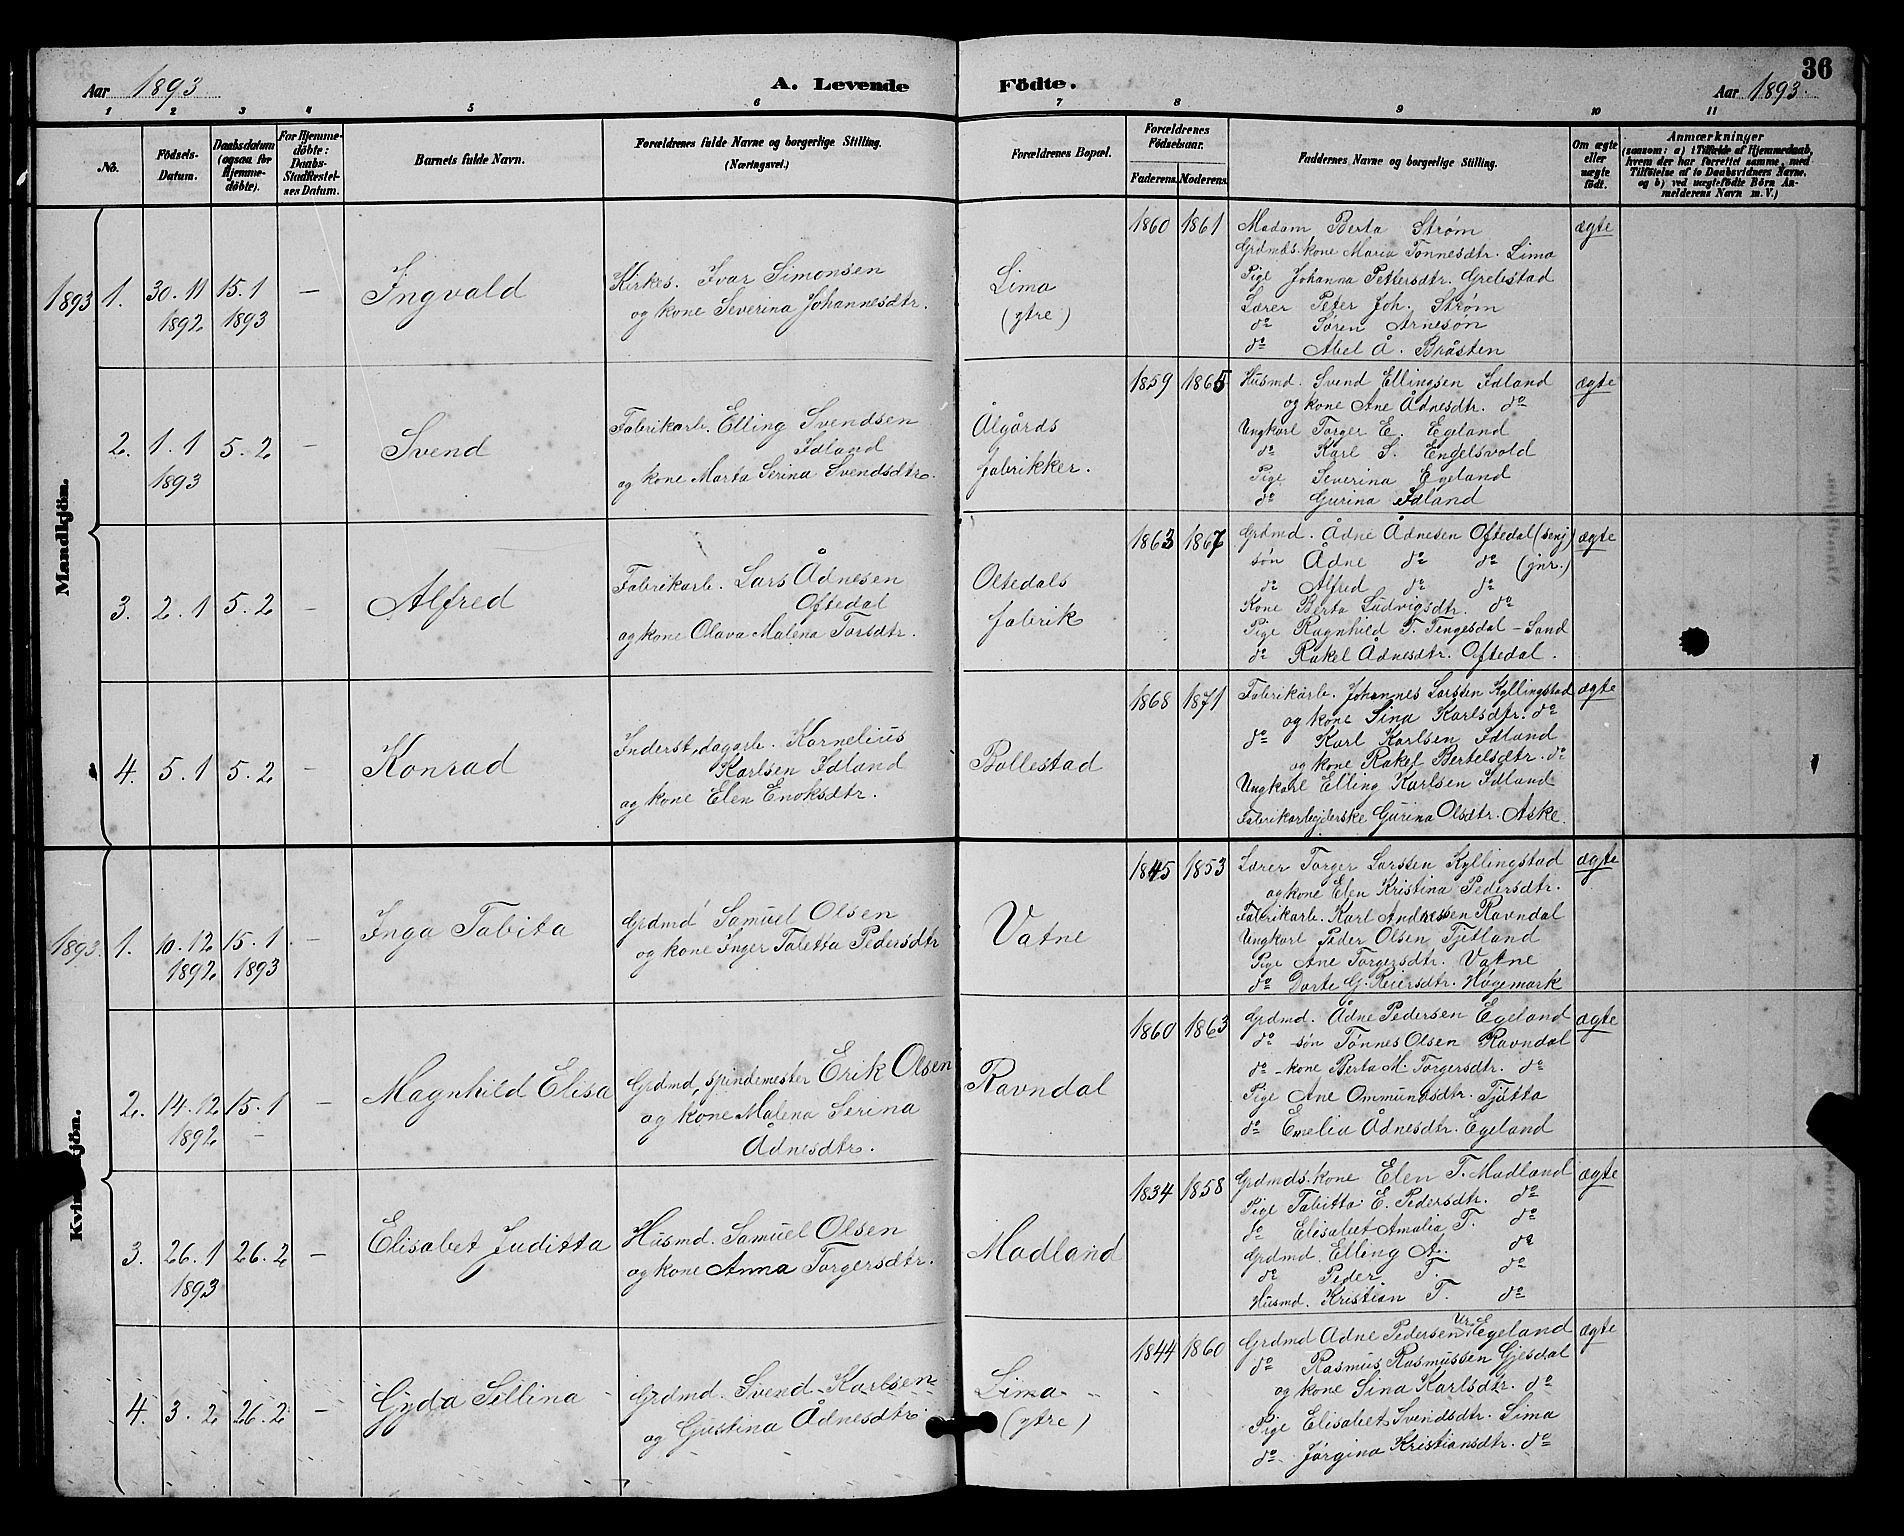 36
Aar 1893
A. Levende Födte.
Aar 1893.
1 2 3 4 5 6 7 8 9 10 11
No.
Födsels-
Datum.
Daabsdatum
(ogsaa for
Hjemme-
döbte).
For Hjemme-
döbte:
Daabs-
Stadfæstel-
ses Datum.
Barnets fulde Navn.
Forældrenes fulde Navne og borgerlige Stilling.
(Næringsvei.)
Forældrenes Bopæl.
Forældrenes
Födselsaar.
Faderens. Moderens.
Faddernes Navne og borgerlige Stilling.
Om ægte
eller
uægte
födt.
Anmærkninger
(saasom: a) i Tilfælde af Hjemmedaab,
hvem der har forrettet samme, med
Tilföielse af to Daabsvidners Navne,
og b) ved uægtefödte Börn An-
melderens Navn m. V.)
Mandkjön.
1893 1. 30.11 15.1 —
1892 1893
Ingvald
Kirkes. Ivar Simonsen
og kone Severina Johannesdtr.
Lima
(ytre)
1860 1861
Madam Berta Strøm
Grdmds. kone Maria Tønnesdtr. Lima
Pige Johanna Pettersdtr. Grelestad
Lærer Peter Joh. Strøm
do Søren Arnesøn
do Abel Å. Bråsten
ægte
2. 1.1 5.2 —
1893
Svend
Fabrikarb. Elling Svendsen
Idland
og kone Marta Serina Svendsdtr.
Ålgårds
fabrikker.
1859 1865
Husmd. Svend Ellingsen Idland
og kone Ane Ådnesdtr. do
Ungkarl Torger E. Egeland
do Karl S. Engelsvold
Pige Severina Egeland
do Gurina Idland
ægte
3. 2.1 5.2 —
Alfred
Fabrikarb. Lars Ådnesen
Oftedal
og kone Olava Malena Torsdtr.
Oltedals
fabrik
1863 1867
Grdmd. Ådne Ådnesen Oftedal (senj)
søn Ådne do do (jnr.)
do Alfred do do
Kone Berta Ludvigsdtr. do
Pige Ragnhild T. Tengesdal – Sand
do Rakel Ådnesdtr. Oftedal.
ægte
4. 5.1 5.2 —
Konrad
Inderst, dagarb. Kornelius
Karlsen Idland
og kone Elen Enoksdtr.
Bollestad
1868 1871
Fabrikarb. Johannes Larsen Kyllingstad
og kone Sina Karlsdtr. do
do Karl Karlsen Idland
og kone Rakel Bertelsdtr. do
Ungkarl Elling Karlsen Idland
Fabrikarbejderske Gurina Olsdtr. Aske.
ægte
1893. 1. 10.12 15.1 —
1892 1893
Inga Tabita
Grdmd Samuel Olsen
og kone Inger Taletta Pedersdtr
Vatne
1845 1853
Lærer Torger Larssen Kyllingstad
og kone Elen Kristina Pedersdtr.
Fabrikarb. Karl Andressen Ravndal
Ungkarl Peder Olsen Tjetland
Pige Ane Torgersdtr. Vatne
do Dorte G. Reiersdtr. Høgemark
ægte
2. 14.12 15.1 —
1892 –
Magnhild Elisa
Grdmd, spindemester Erik Olsen
og kone Malena Serina
Ådnesdtr.
Ravndal
1860 1863
Grdmd. Ådne Pedersen Egeland
do søn Tønnes Olsen Ravndal
do – kone Berta M. Torgersdtr. do
Pige Ane Ommundsdtr. Tjøtta
do Emelia Ådnesdtr. Egeland
ægte
3. 26.1 26.2 —
1893
Elisabet Juditta
Husmd. Samuel Olsen
og kone Anna Torgersdtr.
Madland
1834 1858
Grdmds. kone Elen T. Madland
Pige Tabitta E. Pedersdtr. do
do Elisabet Amalia T. do
Grdmd. Elling A. do
do Peder T. do
Husmd. Kristian T. do
ægte
4. 3.2 26.2 —
Gyda Sellina
Grdmd. Svend Karlsen
og Gustina Ådnesdtr
Lima
(ytre)
1844 1860
Grdmd Ådne Pedersen Egeland
do Rasmus Rasmussen Gjesdal
og kone Sina Karlsdtr. do
Pige Elisabet Svendsdtr. Lima
do Jørgina Kristiansdtr. do
ægte